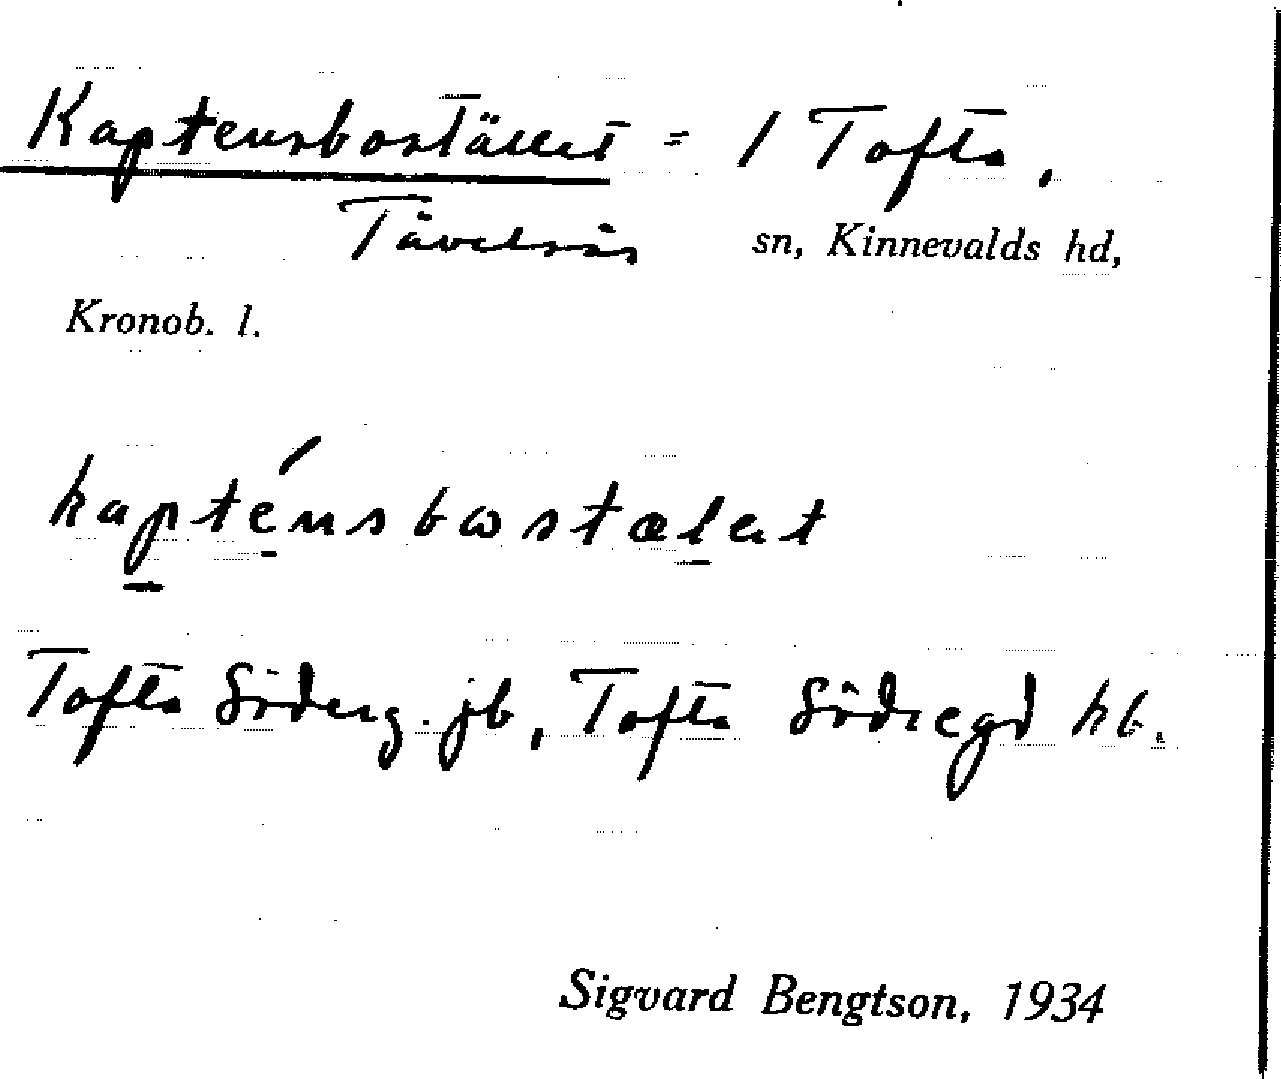 Kaptensbostället = 1 Tofta,
Tävelsås sn, Kinnevalds hd,
Kronob. l.
kapténsbωstælət
Tofta Söderg. jb, Tofta Södregd hb.
Sigvard Bengtson, 1934